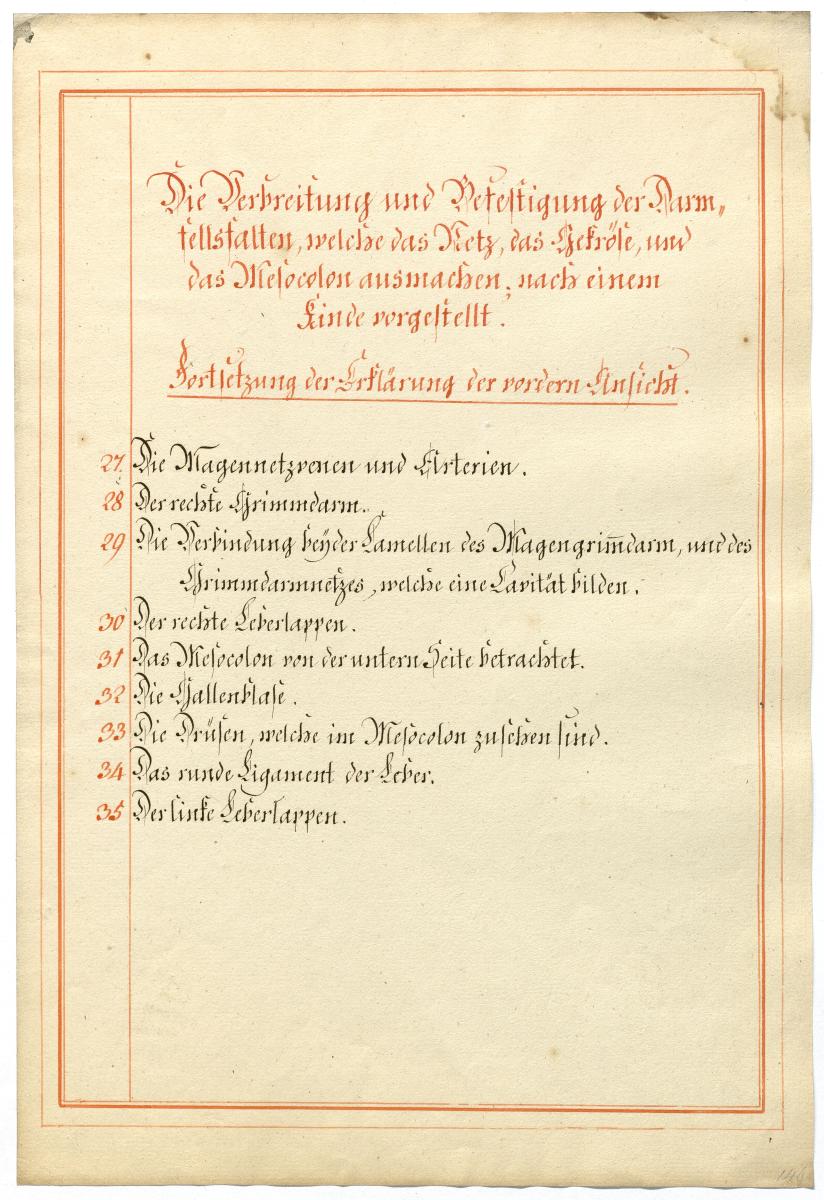 Die Verbreitung und Befestigung der Darm„
fellsfalten, welche das Netz, das Gekröse, und
das Mesocolon ausmachen; nach einem
Kinde vorgestellt.
Fortsetzung der Erklärung der vordern Ansicht.
27. Die Magennetzvenen und Arterien.
28 Der rechte Grimmdarm.
29 Die Verbindung beyder Lamellen des Magengrim̅darm, und des
Grimmdarmnetzes, welche eine Cavität bilden.
30 Der rechte Leberlappen.
31 Das Mesocolon von der untern Seite betrachtet.
32 Die Gallenblase.
33 Die Drüsen, welche im Mesocolon zusehen sind.
34 Das runde Ligament der Leber.
35 Der linke Leberlappen.